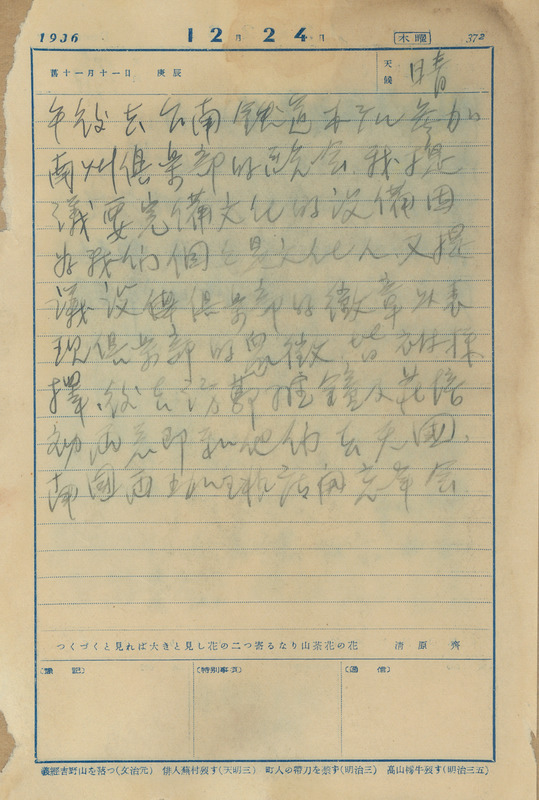 1936 12月24日 木曜 372
舊十一月十一日 庚辰 天候 晴
午後去台南鐵道ホテル參加
南州俱樂部的 會、我提
議要完備文化的設備因
為我們個々是文化人、又提
議設俱樂部的徽章以表
現俱樂部的象徵、皆被採
擇、後去訪
即和他們去
南國 開忘年會
つくづくと見れば大きと見し花の二つ寄るなり山茶花の花 清原齊
〔雜記〕 〔特別事項〕 〔通信〕
義經吉野山を落つ(文治元) 俳人蕪村歿す(天明三) 町人の帶刀を禁ず(明治三) 高山樗牛歿す(明治三五)